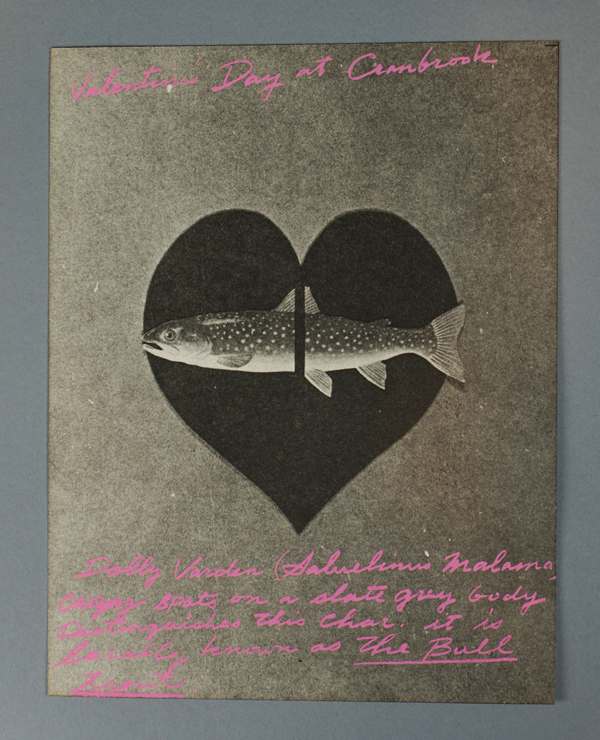 Valentine's Day at Cranbrook
Dolly Varden (Salvelinus Malama,
Creamy spots on a slate grey body
distinguishes this char. it is
locally known as The Bull
trout